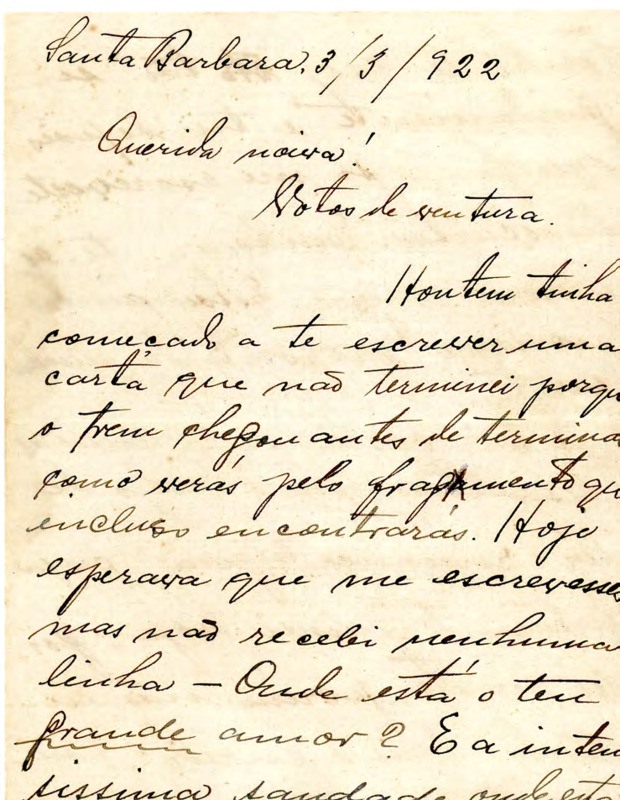 Santa Barbara, 3/3/922
Querida noiva!
Votos de ventura.
Hontem tinha
começado a te escrever uma
carta que não terminei porqu
o trem chegou antes de termina
como verás pelo fragmento qu
incluso encontrarás. Hoje
esperava que me escrevesses
mas não recebi nenhuma
linha – Onde está o teu
grande amor? E a inten
sissima saudade onde esta